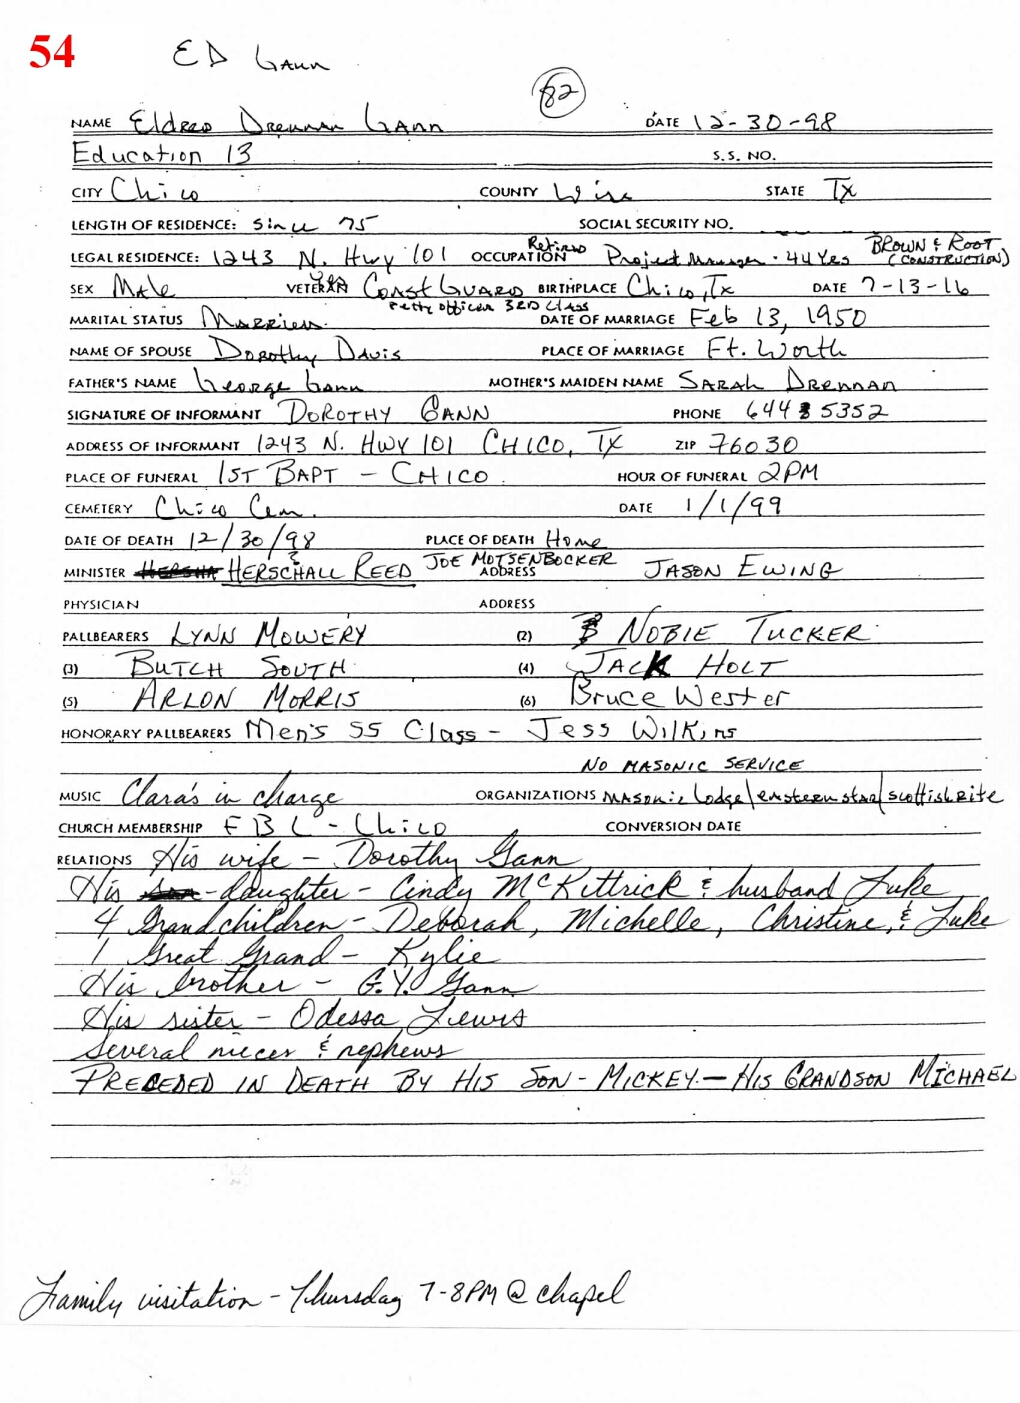 54
ED GANN
82
NAME Eldred Drennan Gann DATE 12-30-98
Education 13 S.S. NO.
CITY Chico COUNTY Wise STATE Tx
LENGTH OF RESIDENCE: Since 75 SOCIAL SECURITY NO.
LEGAL RESIDENCE: 1243 N. Hwy 101 OCCUPATION Retired Project Manager - 44 Yrs BROWN & ROOT (CONSTRUCTION)
SEX Male VETERAN Yes Coast Guard BIRTHPLACE Chico, Tx DATE 7-13-16
Petty Officer 3RD Class
MARITAL STATUS Married DATE OF MARRIAGE Feb 13, 1950
NAME OF SPOUSE Dorothy Davis PLACE OF MARRIAGE Ft. Worth
FATHER'S NAME George Gann MOTHER'S MAIDEN NAME SARAH DRENNAN
SIGNATURE OF INFORMANT DOROTHY GANN PHONE 644 5352
ADDRESS OF INFORMANT 1243 N. HWY 101 CHICO, TX ZIP 76030
PLACE OF FUNERAL 1ST BAPT - CHICO HOUR OF FUNERAL 2PM
CEMETERY Chico Cem. DATE 1/1/99
DATE OF DEATH 12/30/98 PLACE OF DEATH Home
MINISTER HERSCHALL REED & JOE MOTSENBOCKER ADDRESS JASON EWING
PHYSICIAN ADDRESS
PALLBEARERS LYNN MOWERY (2) NOBIE TUCKER
(3) BUTCH SOUTH (4) JACK HOLT
(5) ARLON MORRIS (6) Bruce Wester
HONORARY PALLBEARERS Men's SS Class - Jess Wilkins
NO MASONIC SERVICE
MUSIC Clara's in charge ORGANIZATIONS Masonic Lodge/eastern star/scottish Rite
CHURCH MEMBERSHIP FBC - Chico CONVERSION DATE
RELATIONS His wife - Dorothy Gann
His daughter - Cindy McKittrick & husband Luke
4 Grandchildren - Deborah, Michelle, Christine, & Luke
1 Great Grand - Kylie
His brother - G.Y. Gann
His sister - Odessa Lewis
Several nieces & nephews
PRECEDED IN DEATH BY HIS SON - MICKEY - HIS GRANDSON MICHAEL
Family visitation - Thursday 7-8PM @ chapel